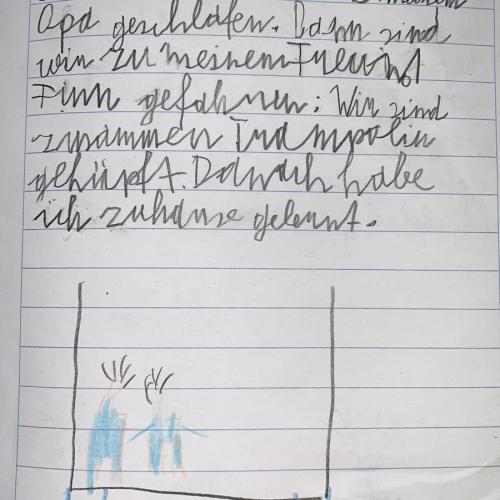 Opa geschlafen. Dann sind
wir zu meinem Freund
Finn gefahren. Wir sind
zusammen Trampolin
gehüpft. Danach habe
ich zuhause gelernt.